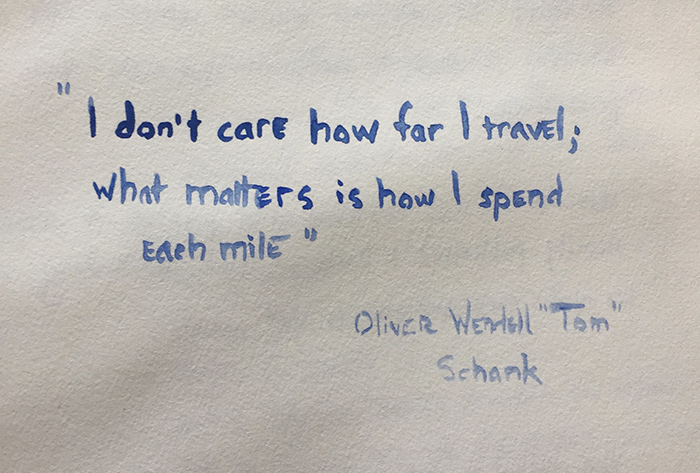 "I don't care how far I travel;
what matters is how I spend
each mile"
Oliver Wendell "Tom"
Schank